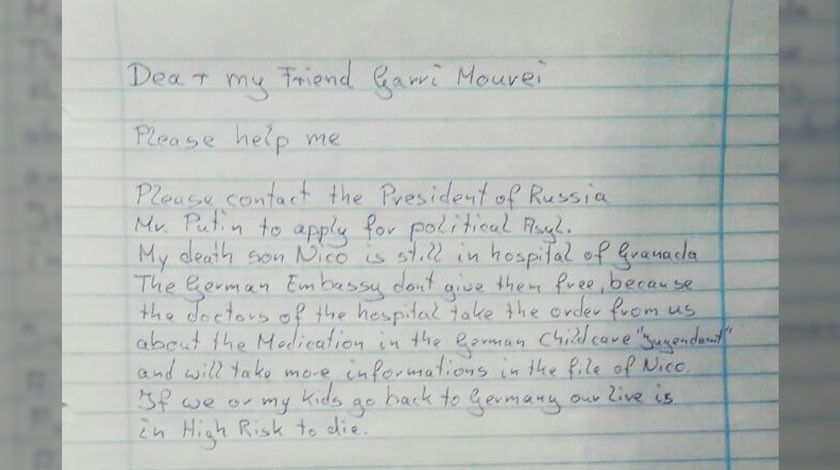 Dear my Friend Garri Mourei
Please help me
Please contact the President of Russia
Mr. Putin to apply for political Asyl.
My death son Nico is still in hospital of Granada
The German Embassy dont give them free, because
the doctors of the hospital take the order from us
about the Medication in the German Childcare "Jugendamt"
and will take more informations in the file of Nico.
If we or my kids go back to Germany our live is
in High Risk to die.